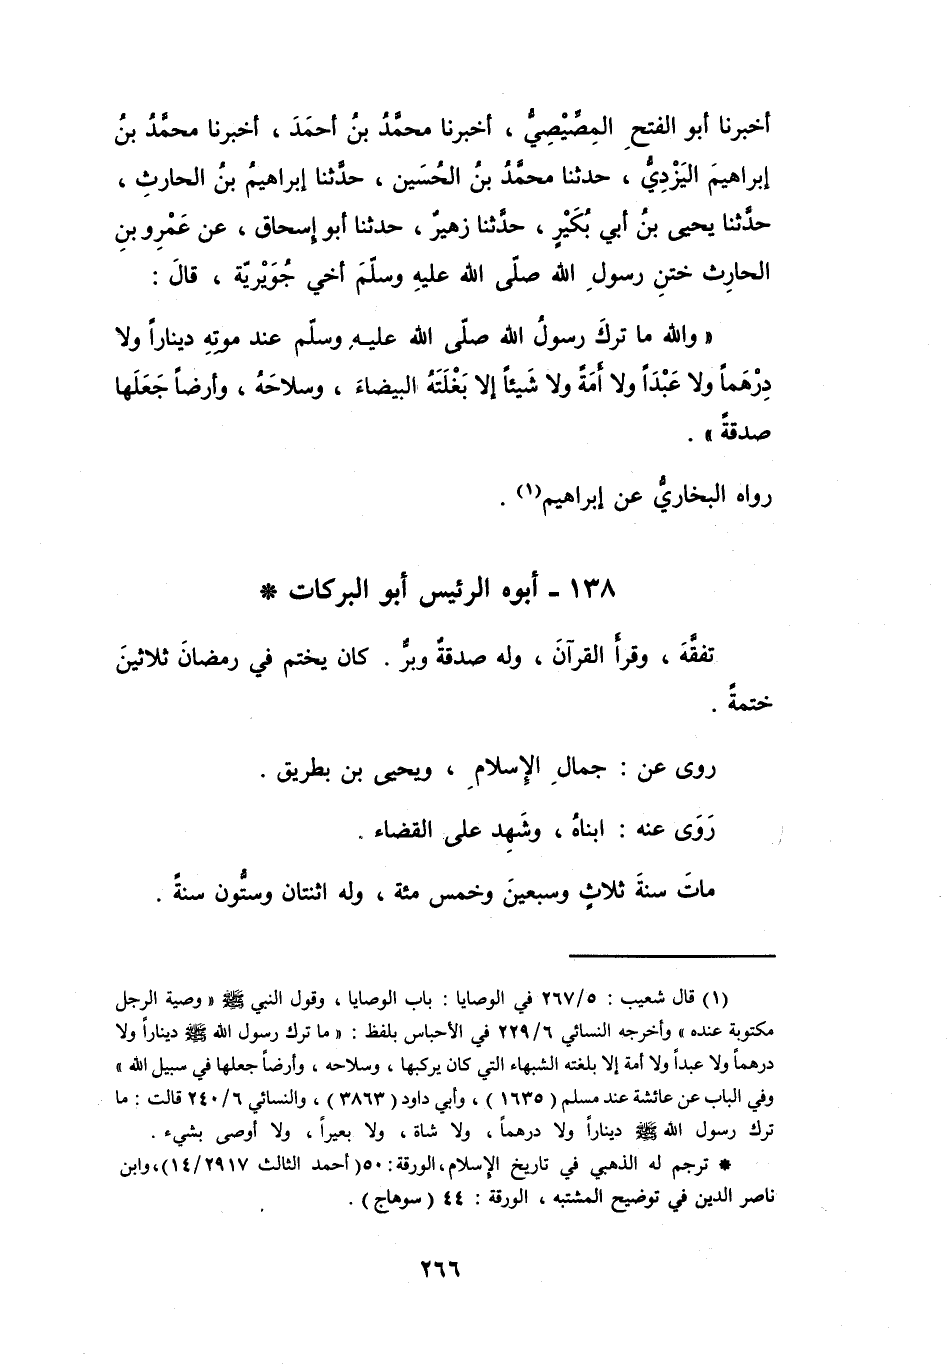 أخبرنا أبو الفتحِ المِصِّيْصِيُّ ، أخبرنا محمَّدُ بنُ أحمَدَ ، أخبرنا محمَّدُ بنُ
إبراهيمَ اليَزْدِيُّ ، حدثنا محمَّدُ بنُ الحُسَين ، حدَّثنا إبراهيمُ بنُ الحارثِ ،
حدَّثنا يحيى بنُ أبي بُكَيْرٍ ، حدَّثنا زهيرٌ ، حدثنا أبو إسحاق ، عن عَمْرِو بنِ
الحارِث ختنِ رسولِ الله صلّى الله عليهِ وسلّمَ أخي جُوَيْريّة ، قالَ :
« والله ما تركَ رسولُ الله صلّى الله عليهِ وسلّم عند موتِهِ ديناراً ولا
دِرْهَماً ولا عَبْدَاً ولا أَمَةً ولا شَيئاً إلا بَغْلَتَهُ البيضاءَ ، وسلاحَهُ ، وأرضاً جَعَلَها
صدقةً » .
رواه البخاريُّ عن إبراهيم(١) .
١٣٨ - أبوه الرئيس أبو البركات *
تفقَّهَ ، وقرأَ القرآنَ ، وله صدقةٌ وبرٌّ . كان يختم في رمضانَ ثلاثينَ
ختمةً .
روى عن : جمالِ الإِسلامِ ، ويحيى بن بطريق .
رَوَى عنه : ابناهُ ، وشَهِد على القضاء .
ماتَ سنةَ ثلاثٍ وسبعينَ وخمس مئة ، وله اثنتان وستُّون سنةً .
(١) قال شعيب : ٢٦٧/٥ في الوصايا : باب الوصايا ، وقول النبي ﷺ « وصية الرجل
مكتوبة عنده » وأخرجه النسائي ٢٢٩/٦ في الأحباس بلفظ : « ما ترك رسول الله ﷺ ديناراً ولا
درهماً ولا عبداً ولا أمة إلا بلغته الشهباء التي كان يركبها ، وسلاحه ، وأرضاً جعلها في سبيل الله »
وفي الباب عن عائشة عند مسلم ( ١٦٣٥ ) ، وأبي داود ( ٣٨٦٣ ) ، والنسائي ٢٤٠/٦ قالت : ما
ترك رسول الله ﷺ ديناراً ولا درهماً ، ولا شاة ، ولا بعيراً ، ولا أوصى بشيء .
* ترجم له الذهبي في تاريخ الإِسلام،الورقة:٥٠( أحمد الثالث ١٤/٢٩١٧)،وابن
ناصر الدين في توضيح المشتبه ، الورقة : ٤٤ ( سوهاج ) .
٢٦٦